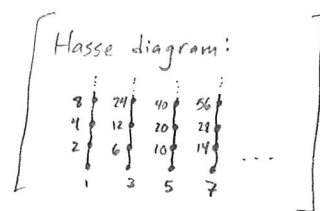 Hasse diagram:
⋮ ⋮ ⋮ ⋮
8 24 40 56
4 12 20 28
2 6 10 14 ...
1 3 5 7